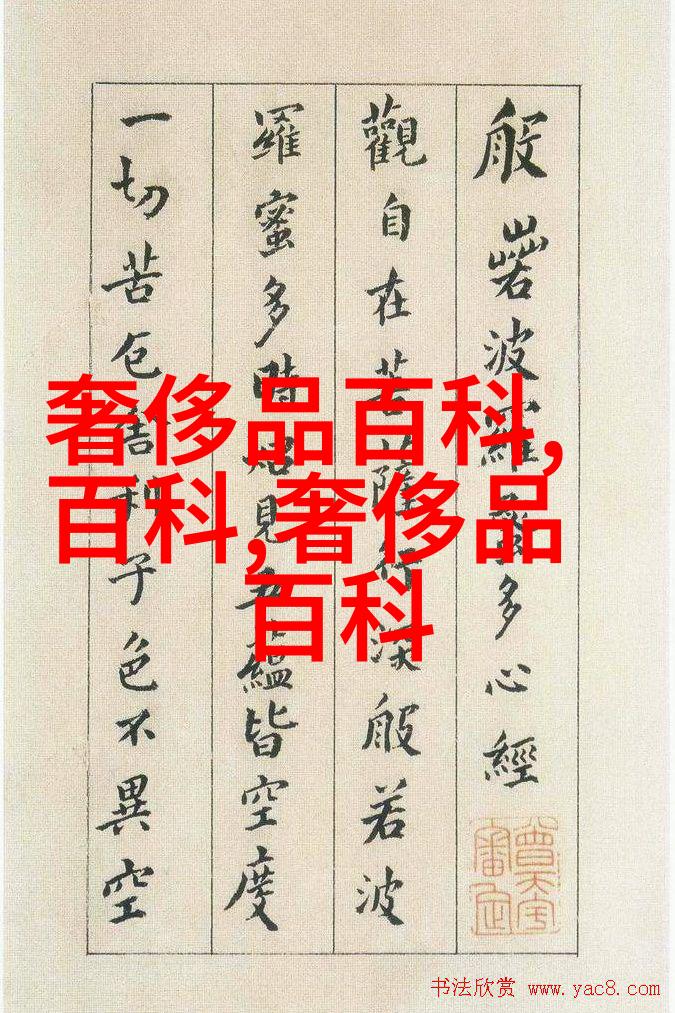 般若波羅蜜多心經
觀自在菩薩行深般若波
羅蜜多時照見五蘊皆空度
一切苦厄舍利子色不異空
奢侈品百科,
百科,奢侈品
百科
书法欣赏 www.yac8.com